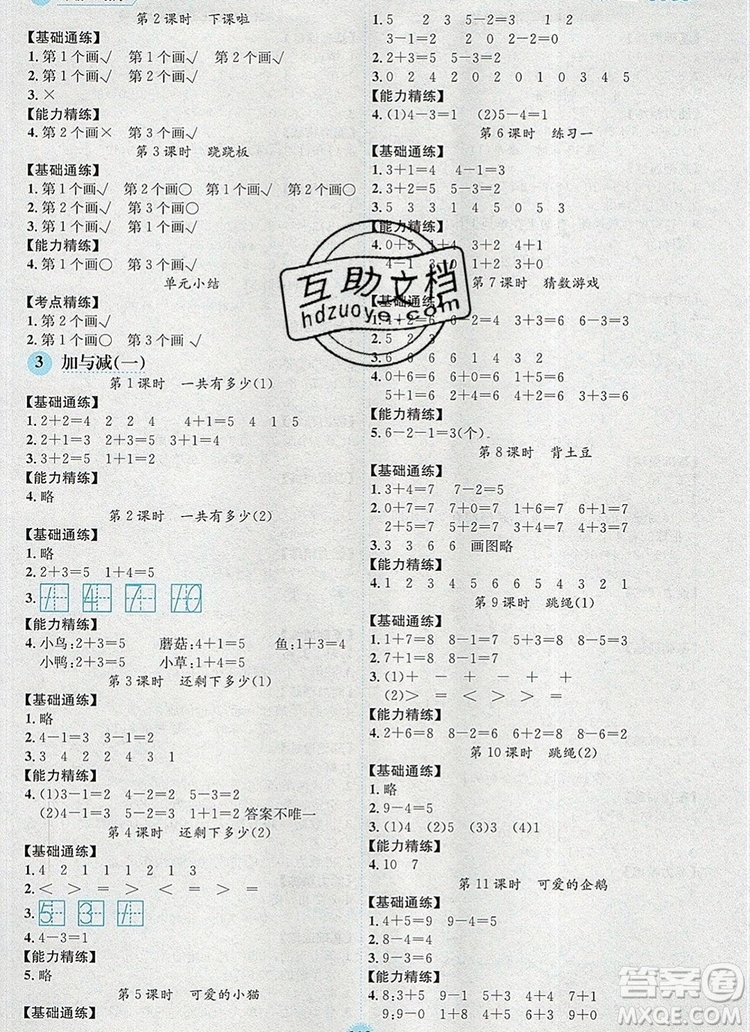 第2课时 下课啦
【基础通练】
1.第1个画√ 第1个画√ 第1个画√
2.第1个画√ 第2个画√ 第2个画√
3.×
【能力精练】
4.第2个画× 第3个画√
第3课时 跷跷板
【基础通练】
1.第1个画√ 第2个画○ 第1个画√ 第2个画○
2.第1个画○ 第3个画√
3.第1个画√ 第1个画√
【能力精练】
4.第1个画○ 第3个画√
单元小结
【考点精练】
1.第2个画√ 第1个画√
2.第1个画√ 第3个画○
3 加与减(一)
第1课时 一共有多少(1)
【基础通练】
1.2+2=4 2 2 4 4+1=5 4 1 5
2.2+1=3 2+3=5 3+1=4
3.3+2=5 1+1=2
【能力精练】
4.略
第2课时 一共有多少(2)
【基础通练】
1.略
2.2+3=5 1+4=5
3.1 4 7 10
【能力精练】
4.小鸟:2+3=5 蘑菇:4+1=5 鱼:1+3=4
小鸭:2+3=5 小草:1+4=5
第3课时 还剩下多少(1)
【基础通练】
1.略
2.4-1=3 5-2=3
3.3 4 2 2 4 3 1
【能力精练】
4.(1)3-1=2 4-2=2 5-3=2
(2)4-1=3 5-2=3 1+1=2 答案不唯一
第4课时 还剩下多少(2)
【基础通练】
1.4 2 1 1 2 1 3
2.< > = > < =
3.5 3 1
4.4-3=1
【能力精练】
5.略
第5课时 可爱的小猫
【基础通练】
1.5 2 3 2 5 2
3-1=2 2 0 2-0=2
2.2+3=5 5-5=0
3.0 2 4 0 2 0 2 0 1 0 3 4 5
【能力精练】
4.(1)4-3=1 (2)5-4=1
第6课时 练习一
【基础通练】
1.3+1=4 4-1=3
2.2+3=5 5-3=2
3.5 3 3 1 4 5 0 5 3
【能力精练】
4.0+5 1+4 2+3 4+1
4-1 3+0 1+2
第7课时 猜数游戏
【基础通练】
1.2+4=6 6-2=4 6-3=3
2.5+1=6
3.6 0 6 6 6 1 1
4.0+6=6 1+5=6 2+4=6 3+3=6
5+1=6 4+2=6 6+0=6
【能力精练】
5.6-2-1=3(个).
第8课时 背土豆
【基础通练】
1.3+4=7 7-2=5
2.0+7=7 1+6=7 4+3=7 6+1=7
2+5=7 5+2=7 3+4=7 7+0=7
3.3 3 6 6 画图略
【能力精练】
4.1 2 3 4 5 6 6 5 4 3 2 1
第9课时 跳绳(1)
【基础通练】
1.1+7=8 8-1=7 7+1=8 8-7=1
2.7+1=8
3.(1)+ - + - + -
(2)> = < = < =
【能力精练】
4.2+6=8 8-2=6 6+2=8 8-6=2
第10课时 跳绳(2)
【基础通练】
1.略
2.9-4=5
3.(1)√ (2)√ (3)√ (4)√
【能力精练】
4.10 7
第11课时 可爱的企鹅
【基础通练】
1.4+5=9 9-5=4
2.8-4=4
3.9-5=4
【能力精练】
4.8:3+5 9-1 10-2 8-0
5:9-4 2+3 8-3
互助文档
hdzuoye.com
答案圈
MXQE.COM